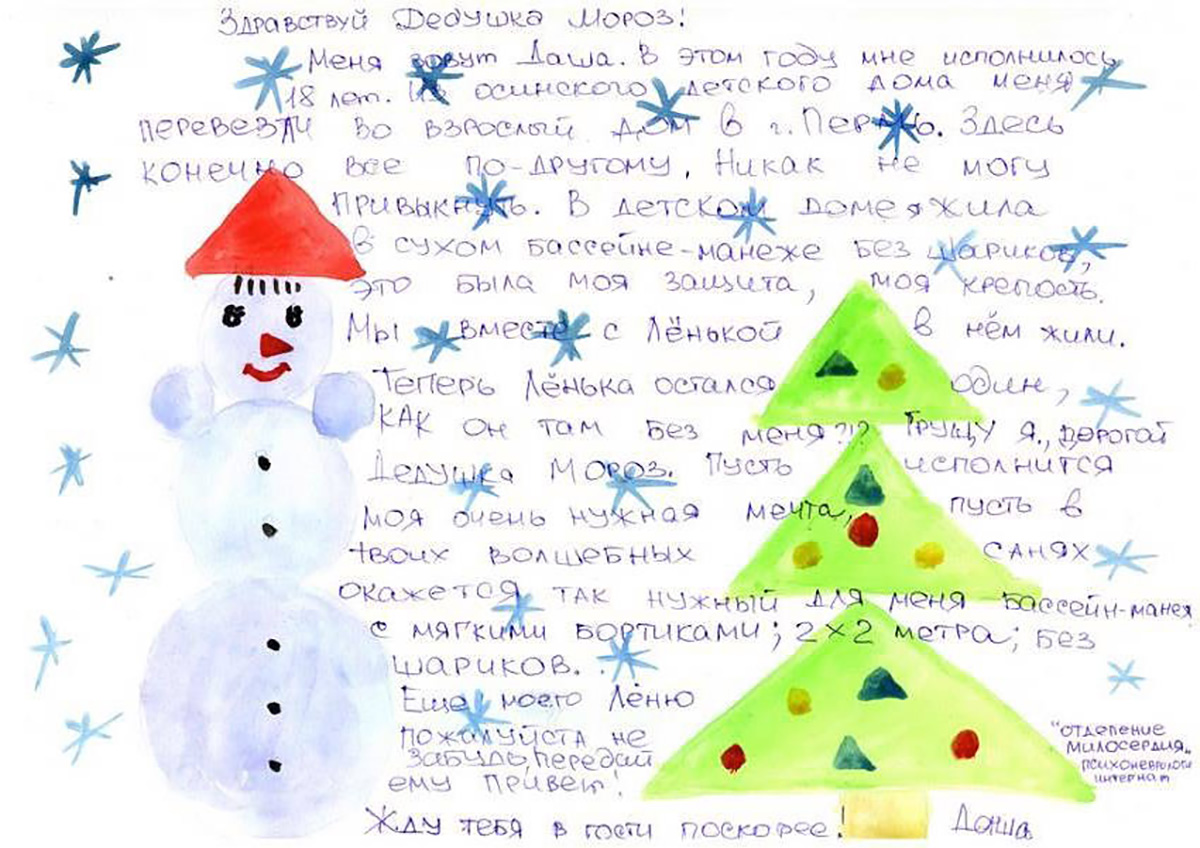 Здравствуй Дедушка Мороз!
Меня зовут Даша. В этом году мне исполнилось
18 лет. Из осинского детского дома меня
перевезли во взрослый дом в г. Пермь. Здесь
конечно все по-другому. Никак не могу
привыкнуть. В детском доме я жила
в сухом бассейне-манеже без шариков,
это была моя защита, моя крепость.
Мы вместе с Лёнькой в нём жили.
Теперь Лёнька остался один,
как он там без меня?!? Грущу я, дорогой
Дедушка Мороз. Пусть исполнится
моя очень нужная мечта, пусть в
твоих волшебных санях
окажется так нужный для меня бассейн-манеж
с мягкими бортиками; 2×2 метра; без
шариков.
Еще моего Лёню
пожалуйста не
забудь, передай
ему привет!
Жду тебя в гости поскорее!
Даша
"отделение
милосердия"
психоневрологи
интернат